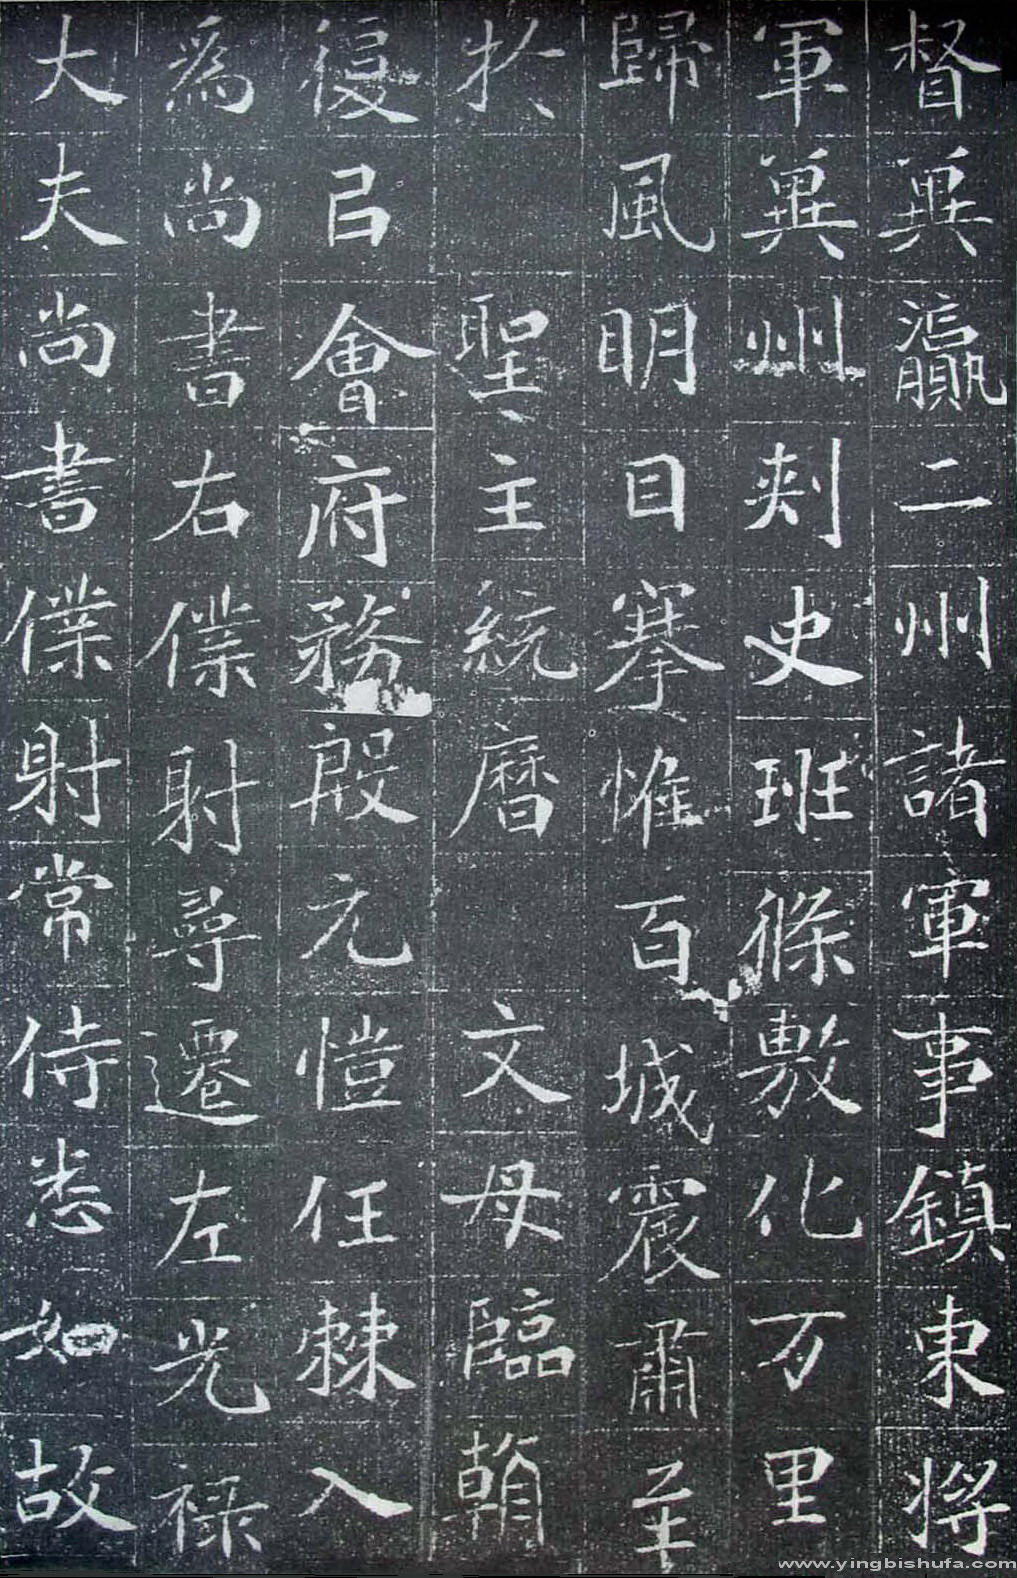 督兾瀛二州諸軍事鎮東將
軍兾州刾史班條敷化万里
歸風明目搴帷百城震肅至
扵 聖主統曆 文母臨朝
復以會府務殷元愷任棘入
爲尚書右僕射尋遷左光祿
大夫尚書僕射常侍悉如故
www.yingbishufa.com